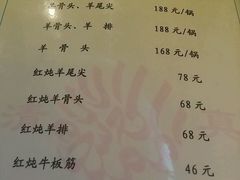 羊骨头、羊尾尖 188 元/锅
羊骨头、羊 排 188 元/锅
羊 骨 头 168 元/锅
红炖羊尾尖 78 元
红炖羊骨头 68 元
红炖羊排 68 元
红炖牛板筋 46 元